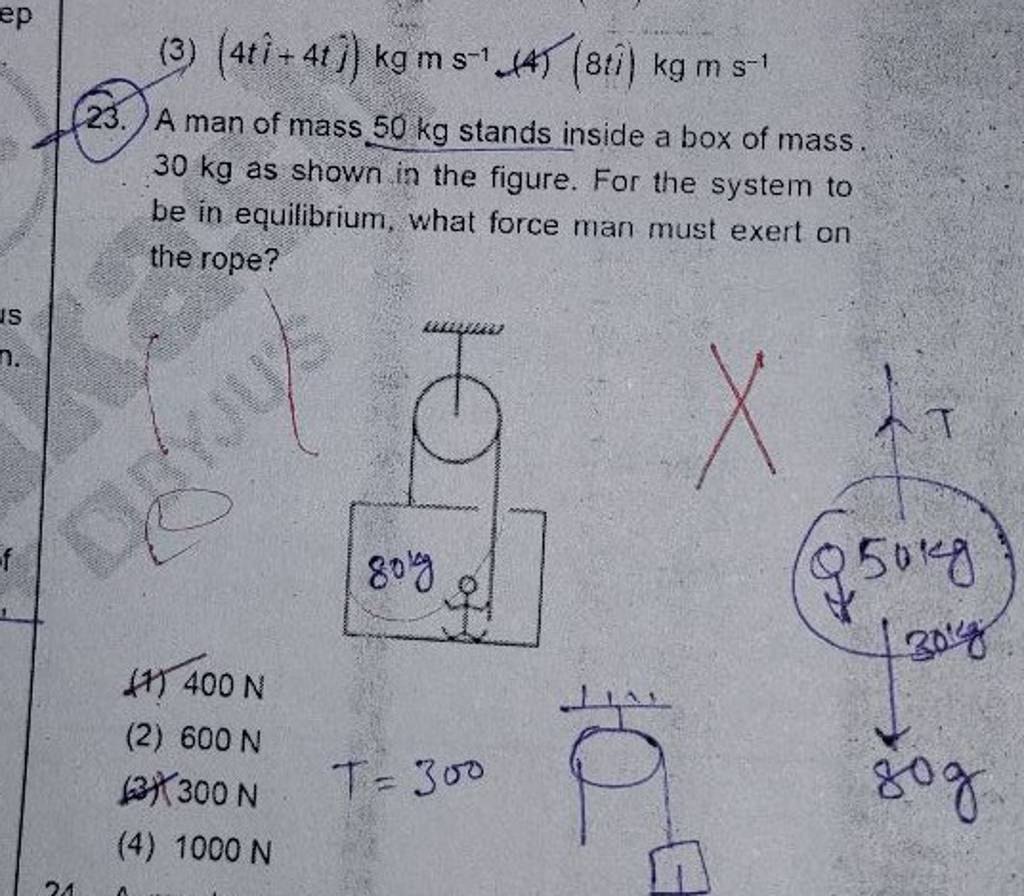 ep
(3) (4tî + 4tĵ) kg m s⁻¹ (4) (8tî) kg m s⁻¹
23. A man of mass 50 kg stands inside a box of mass
30 kg as shown in the figure. For the system to
be in equilibrium, what force man must exert on
the rope?
us
n.
T
80kg
50kg
30kg
(1) 400 N
(2) 600 N
(3) 300 N
(4) 1000 N
T = 300
80g
24.